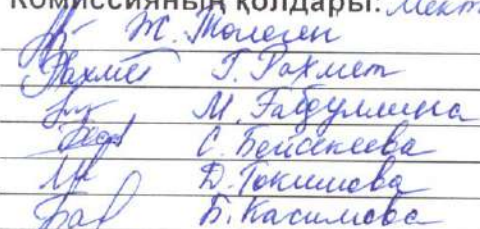 Комиссияның қолдары: Мект
Ж. Төлеген
Рахмет Г. Рахмет
М. Габдуллина
С. Бейсекеева
Д. Токишова
Б. Касимова